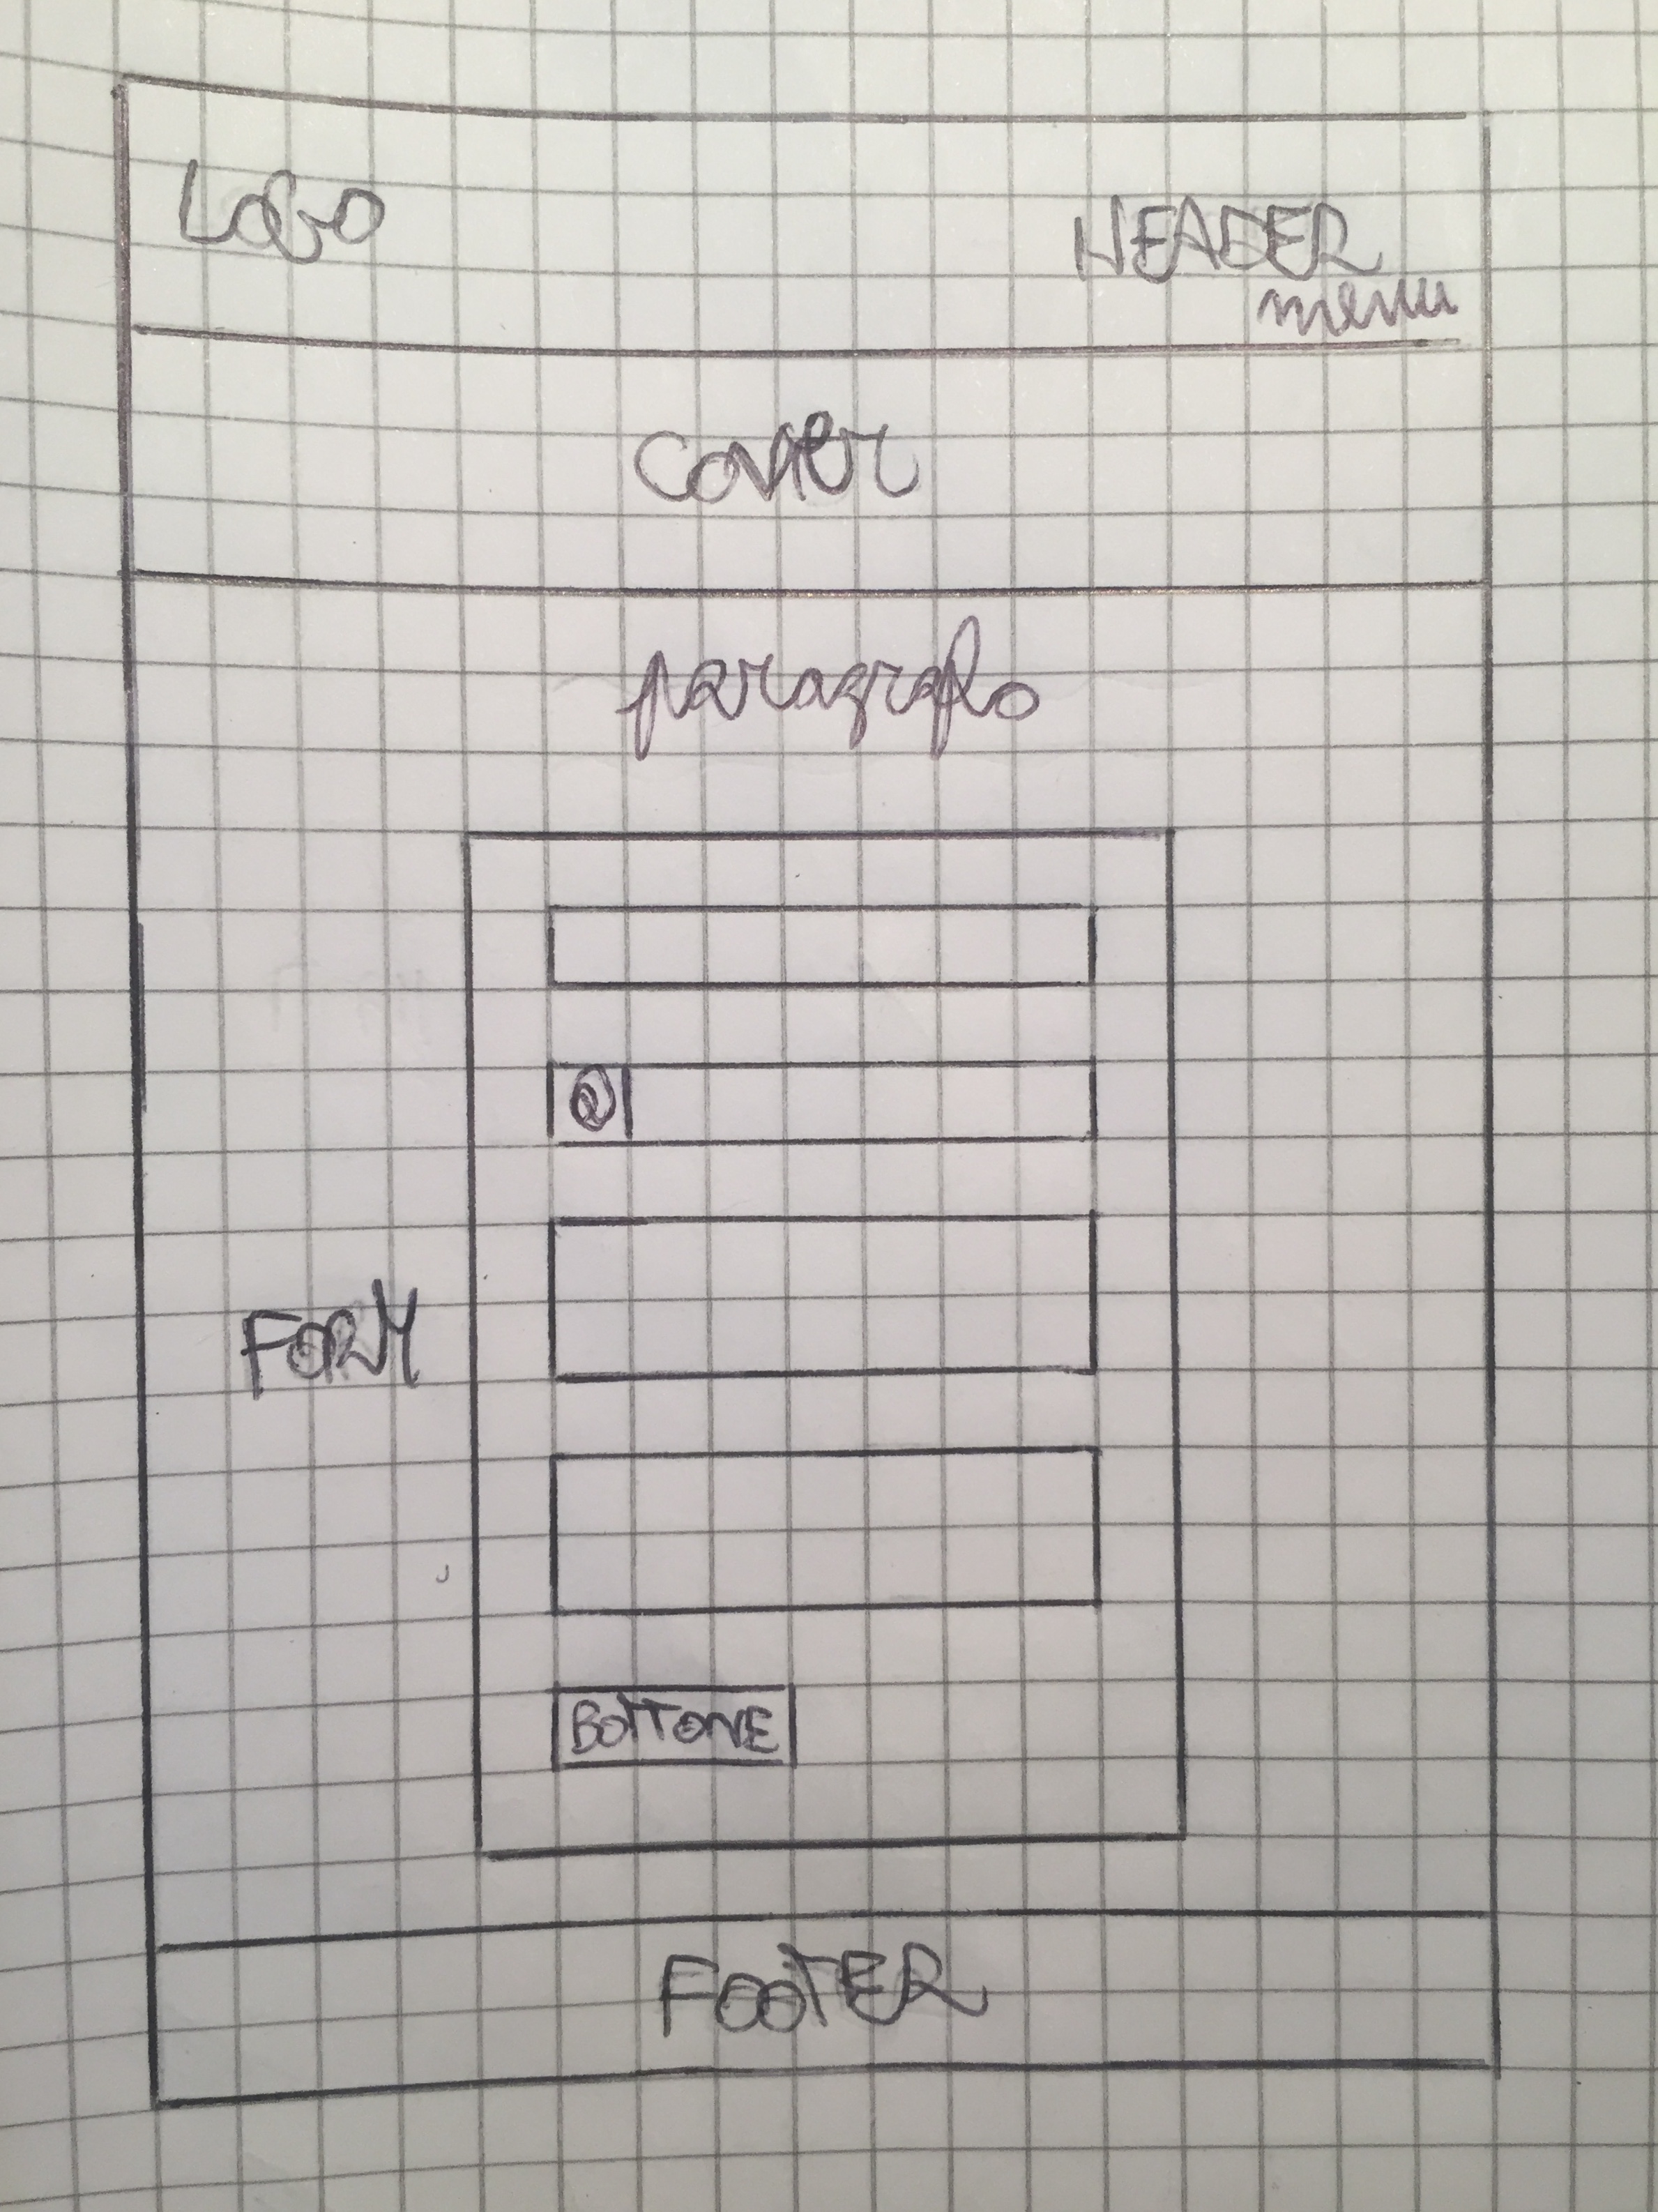 LOGO
HEADER
menu
COVER
paragrafo
@
FORM
BOTTONE
FOOTER